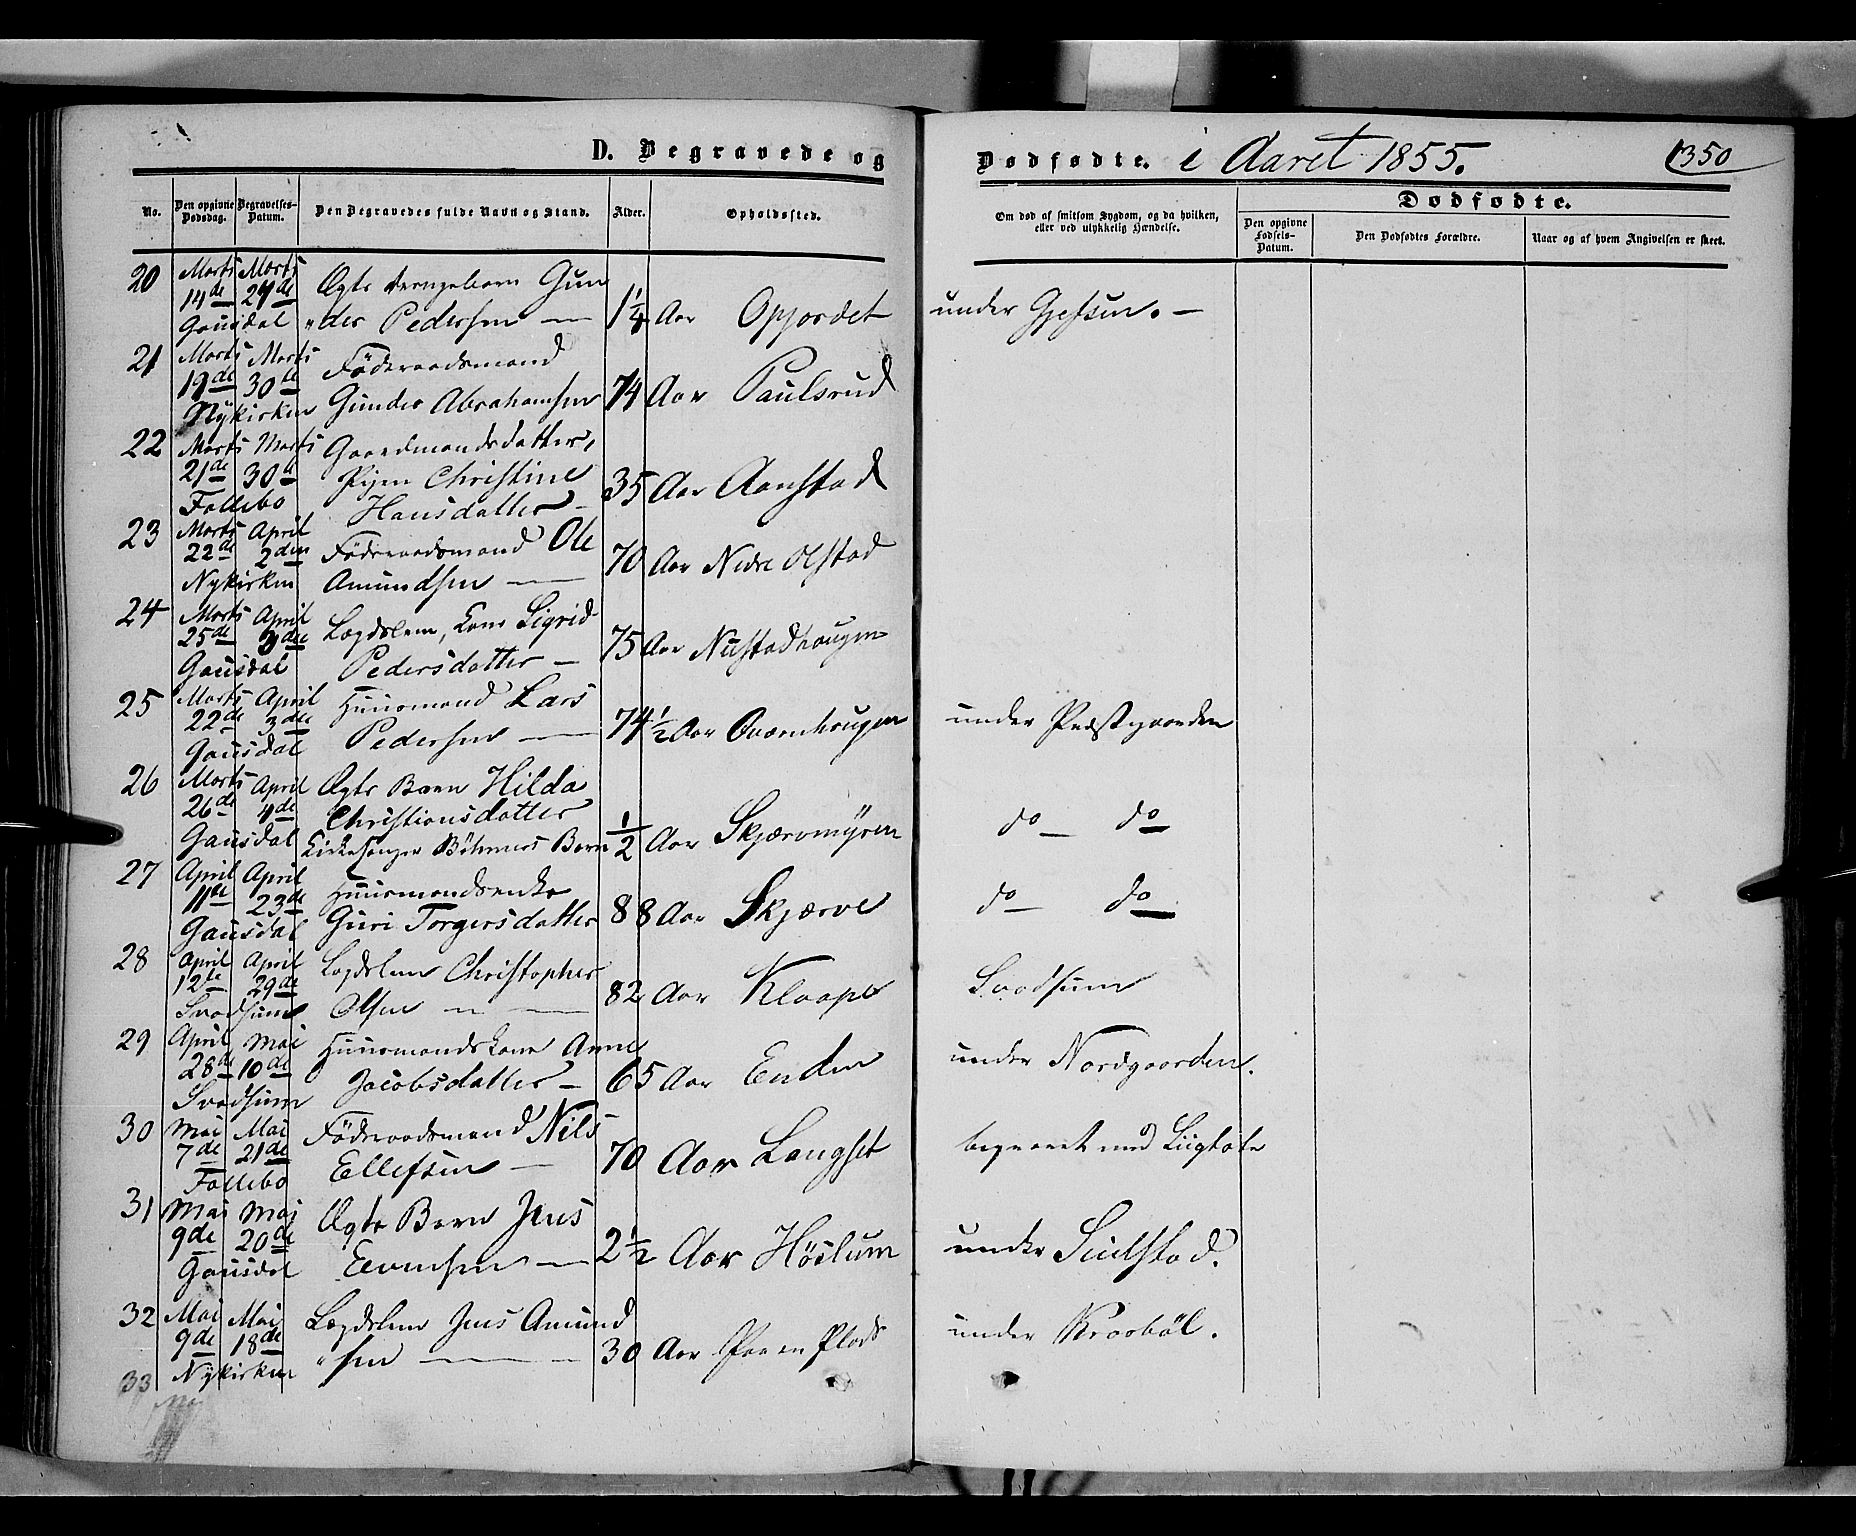 D. Begravede og Dødfødte. i Aaret 1855. 350
No. Den opgivne Dødsdag. Begravelses-Datum. Den Begravedes fulde Navn og Stand. Alder. Opholdssted. Om død af smitsom Sygdom, og da hvilken, eller ved ulykkelig Hændelse. Dødfødte.
Den opgivne Fødsels-Datum. Den Dødfødtes Forældre. Naar og af hvem Angivelsen er skeet.
20 Marts Marts Ægte Drengebarn Gun
14de 24de
Gausdal "der Pedersen — 1¼ Aar Opjordet under Gjefsen. —
21 Marts Marts Föderaadsmand
19de 30te
Nykirken Gunder Abrahamsen 74 Aar Paulsrud
22 Marts Marts Gaardmandsdatter,
21de 30te Christine 35 Aar Aanstad
Follebo Hansdatter —
23 Marts April Föderaadsmand Ole
22de 2den 70 Aar Nedre Olstad
Nykirken Amundsen —
24 Marts April Lægdslem, Kone Sigrid
25de 75 Aar
Gausdal Pedersdatter —
25 Marts April Huusmand Lars
22de 3die 74½ Aar Qværnhougen under Præstgaarden
Gausdal Pedersen —
26 Marts April Ægte Barn Hilda
26de 4de Christiansdatter ½ Aar Skjærvmyren do — do
Gausdal Kirkesanger Böhmers Barn
27 April April Huusmandsenke
11te 23de 88 Aar Skjærve do — do
Gausdal Guri Torgersdatter
28 April April Lægdslem Christopher
12te 29de 82 Aar Klaape Svadsum
Svadsum Olsen — —
29 April Mai Huusmandskone Anne
28de 10de Jacobsdatter — 65 Aar Enden under Nordgaarden.
Svadsum
30 Mai Mai Föderaadsmand Nils
7de 21de Ellefsen — 70 Aar Langset begravet med Liigtale
Follebo
31 Mai Mai Ægte Barn Jens
9de 20de 2½ Aar Höslum under
Gausdal Evensen —
32 Mai Mai Lægdslem Jens Amund
9de 18de "sen — — — 30 Aar Paa en Plads under Kraabøl.
Nykirken
33
Mai